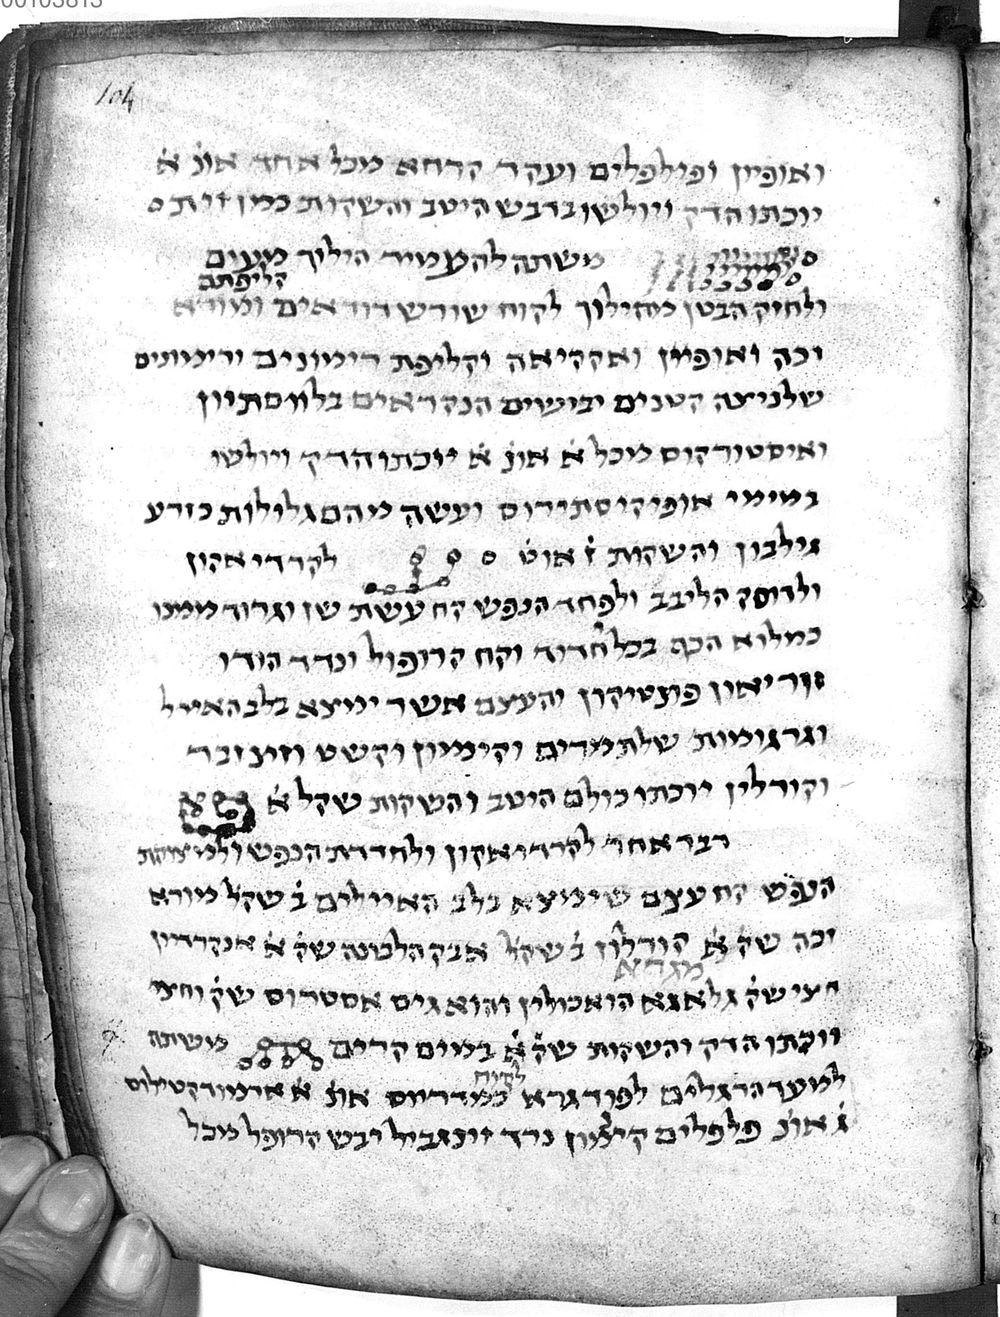 00103813
104
ואופיון ופילפלים ועקר קרחא מכל אחד אונ֗ א֗
יוכתו הדק ויולשו בדבש היטב והשקות כמין זית
משתה להעמיד הילוך מעים
קליפתם
ולחיזק הבטן מהילוך לקוח שורש דודאים ומורא
זכה ואופיון ואקקיאה וקליפת רימונים ורימונים
שלניצה קטנים יבישים הנקראים בלווסתיון
ואיסטורקוס מכל א֗ אונ֗ א֗ יוכתו הדק ויולשו
במימי אופיקיסתידוס ועשה מהם גלולות כזרע
גילבון והשקות ז֗ או ט֗ לקרדיאקון
ולדופק הליבב ולפחד הנפש קח עשת שן וגרוד ממנו
כמלוא הכף בכל חדוד וקח קרופול ונרד הודו
ודריאון פונטיקון והעצם אשר ימצא בלב האייל
וגרגומות שלתמרים וקימיון וקשט וזינזבר
וקורלין יוכתו כולם היטב והשקות שקל א֗
דבר אחר לקרדיאקון ולחדרת הנפש ולמיצוקת
הנפש קח עצם שימצא בלב האיילים ב֗ שקל מורא
זכה שק֗ א֗ קורלון ב֗ שקל אבק הלבונה שק֗ א֗ אנקרדיון
מגדא
חצי שק֗ גלאגא הואכולין והוא גיס אסטרוס שק֗ וחצי
יוכתו הדק והשקות שק֗ א֗ במים קרים משתה
לקוח
למעד הרגלים לפודגרא כמדריוס אונ֗ א֗ ארמודקטילוס
ג֗ אונ֗ פלפלים קימון נרד זינגביל יבש קרופל מכל